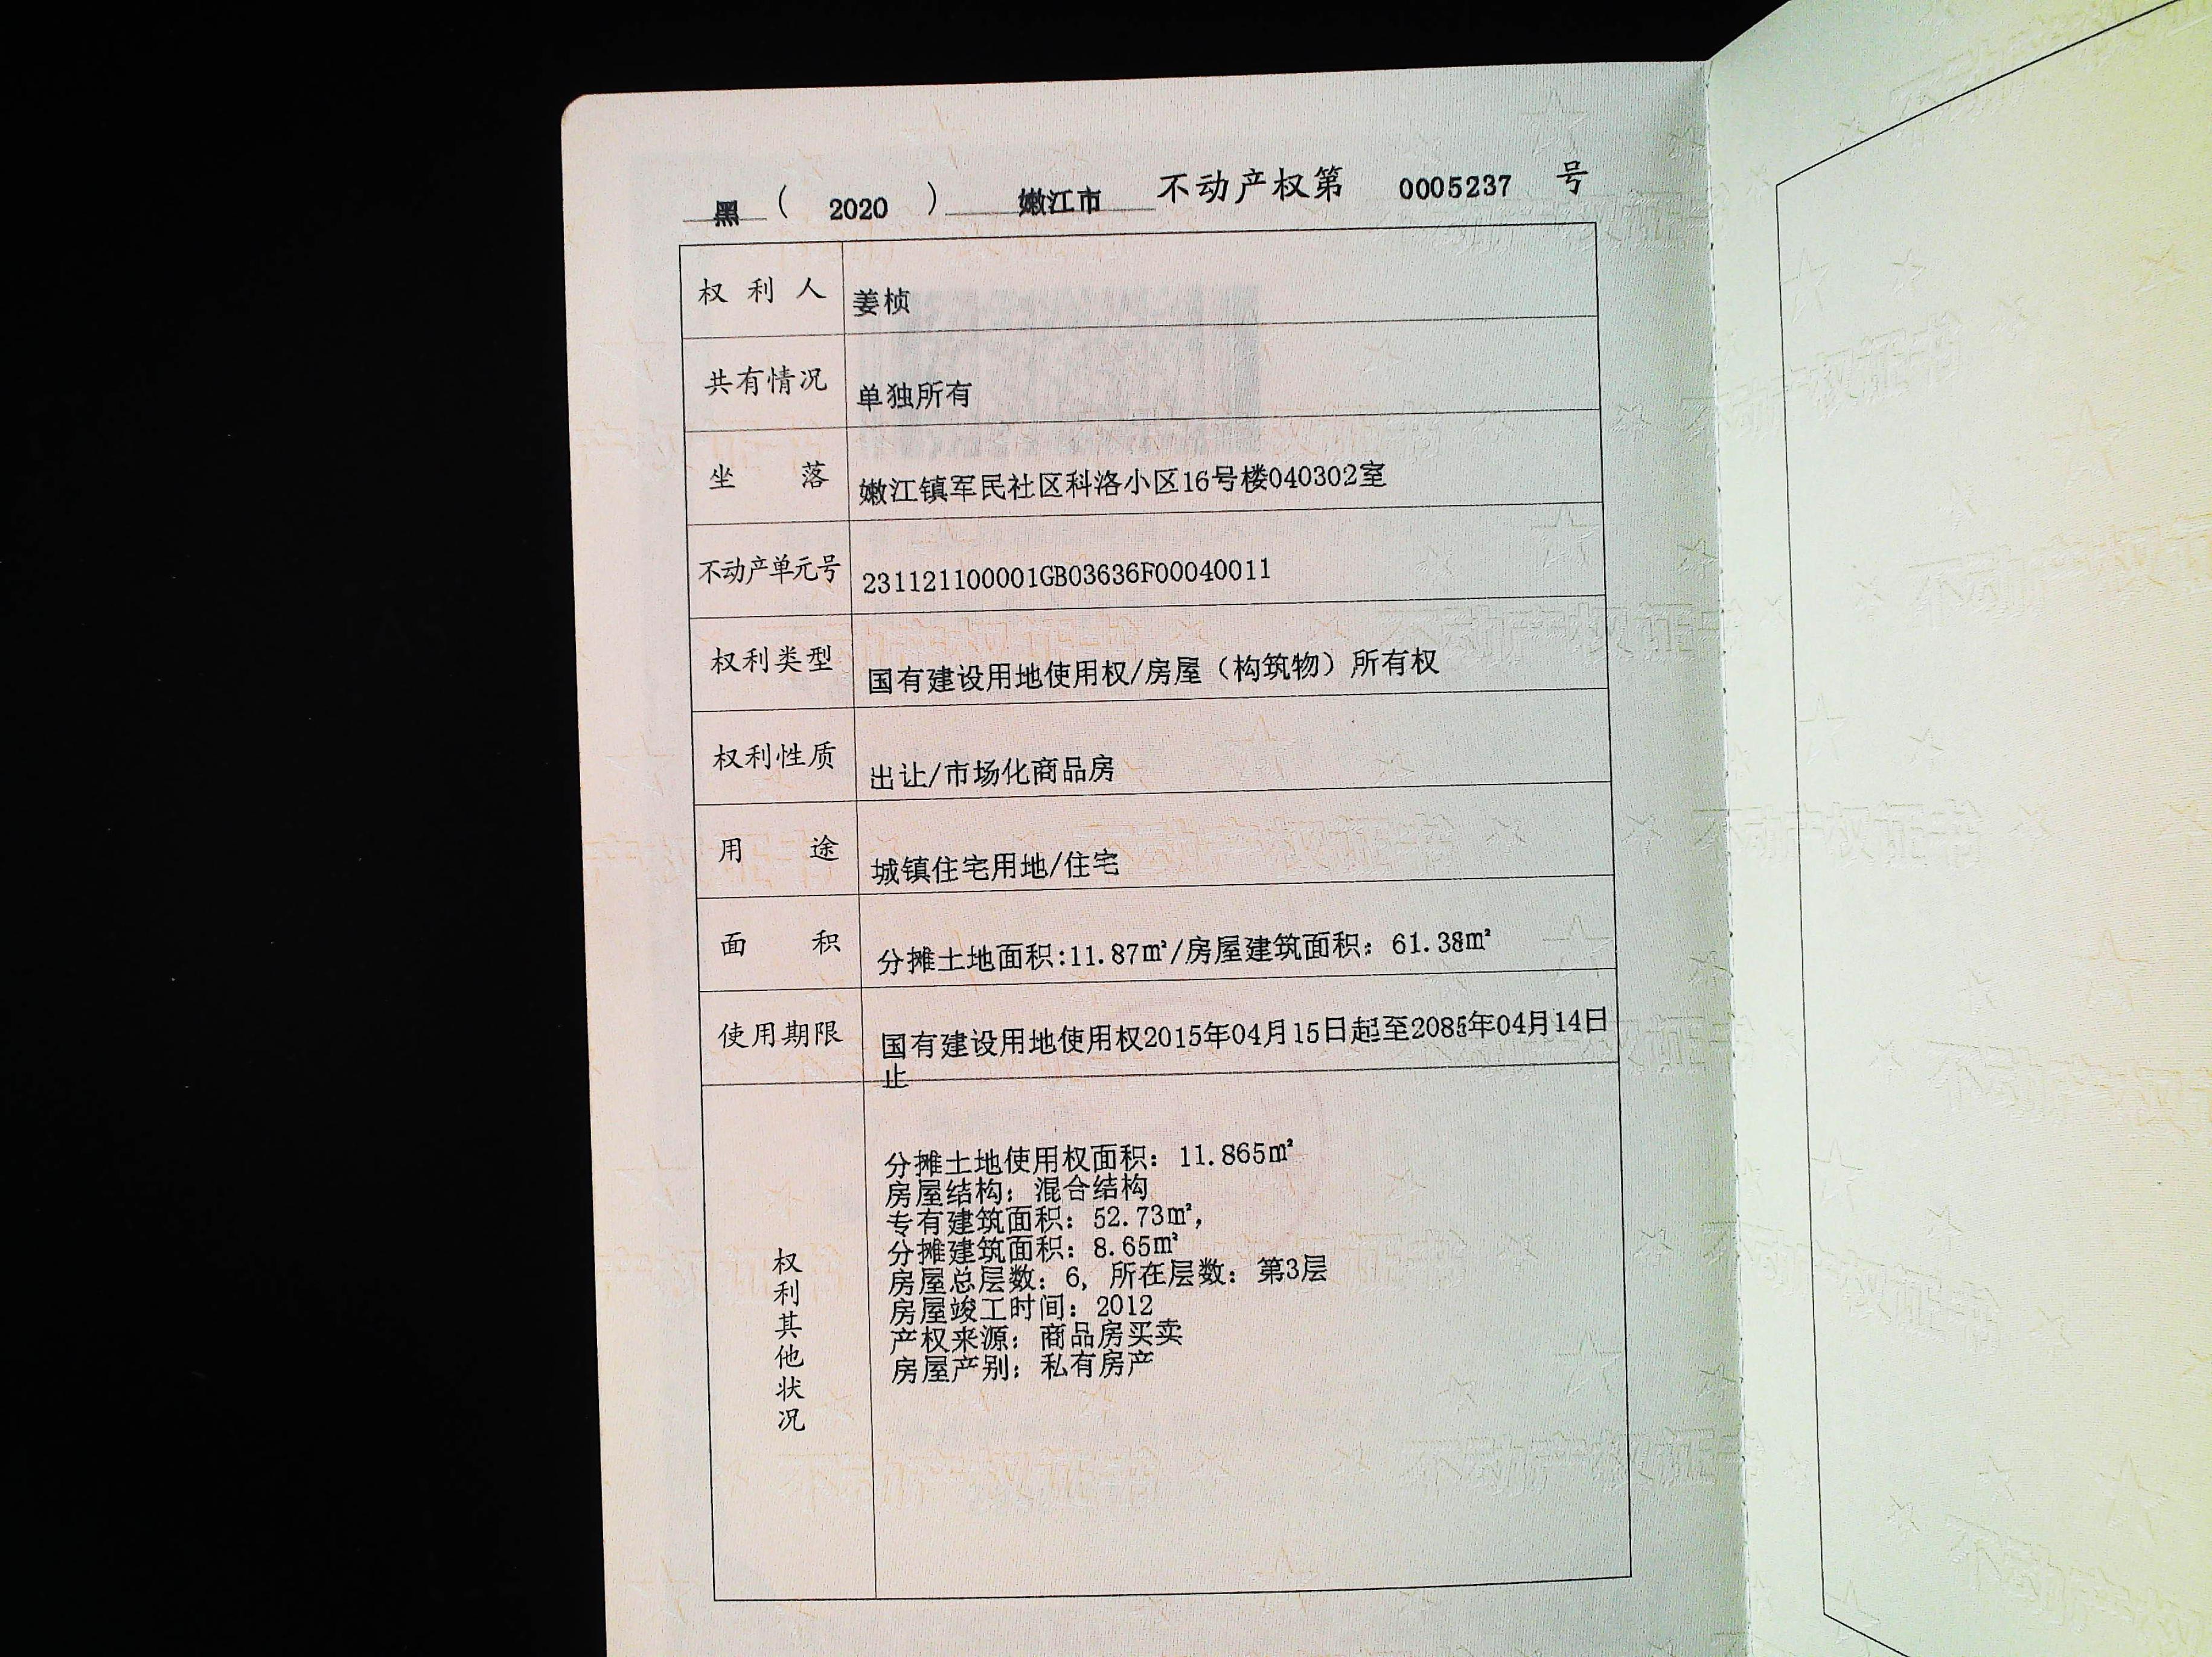 黑 ( 2020 ) 嫩江市 不动产权第 0005237 号
权利人 姜桢
共有情况 单独所有
坐落 嫩江镇军民社区科洛小区16号楼040302室
不动产单元号 231121100001GB03636F00040011
权利类型 国有建设用地使用权/房屋（构筑物）所有权
权利性质 出让/市场化商品房
用途 城镇住宅用地/住宅
面积 分摊土地面积:11.87㎡/房屋建筑面积：61.38㎡
使用期限 国有建设用地使用权2015年04月15日起至2085年04月14日
止
权利其他状况
分摊土地使用权面积：11.865㎡
房屋结构：混合结构
专有建筑面积：52.73㎡，
分摊建筑面积：8.65㎡
房屋总层数：6，所在层数：第3层
房屋竣工时间：2012
产权来源：商品房买卖
房屋产别：私有房产
不动产权证书